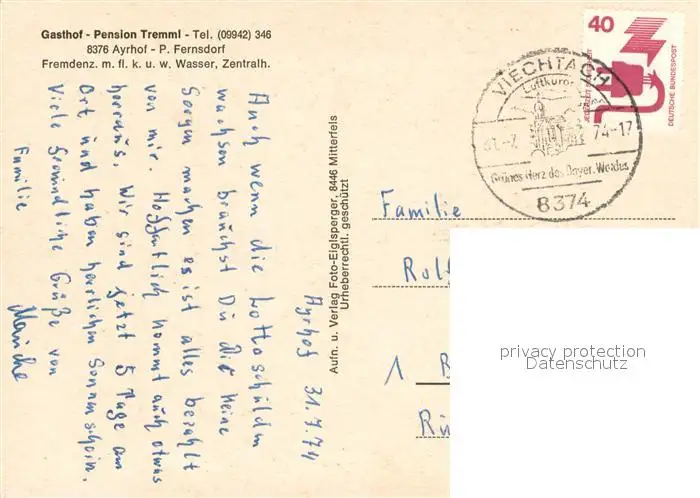 Gasthof - Pension Tremml - Tel. (09942) 346
8376 Ayrhof - P. Fernsdorf
Fremdenz. m. fl. k. u. w. Wasser, Zentralh.
Ayrhof 31.7.74
Auch wenn die Lottoschulden
wachsen brauchst Du Dir keine
Sorgen machen es ist alles bezahlt
von mir. Hoffentlich kommt auch etwas
herraus. Wir sind jetzt 5 Tage am
Ort und haben herrlichen Sonnenschein.
Viele freundliche Grüße von
Familie
Aufn. u. Verlag Foto-Eiglsperger, 8446 Mitterfels
Urheberrechtl. geschützt
40
JEDERZEIT
DEUTSCHE BUNDESPOST
VIECHTACH
Luftkurort
31.-7. 74-17
Grünes Herz des Bayer. Waldes
8374
Familie
Rolf
1 B
Rü
privacy protection
Datenschutz